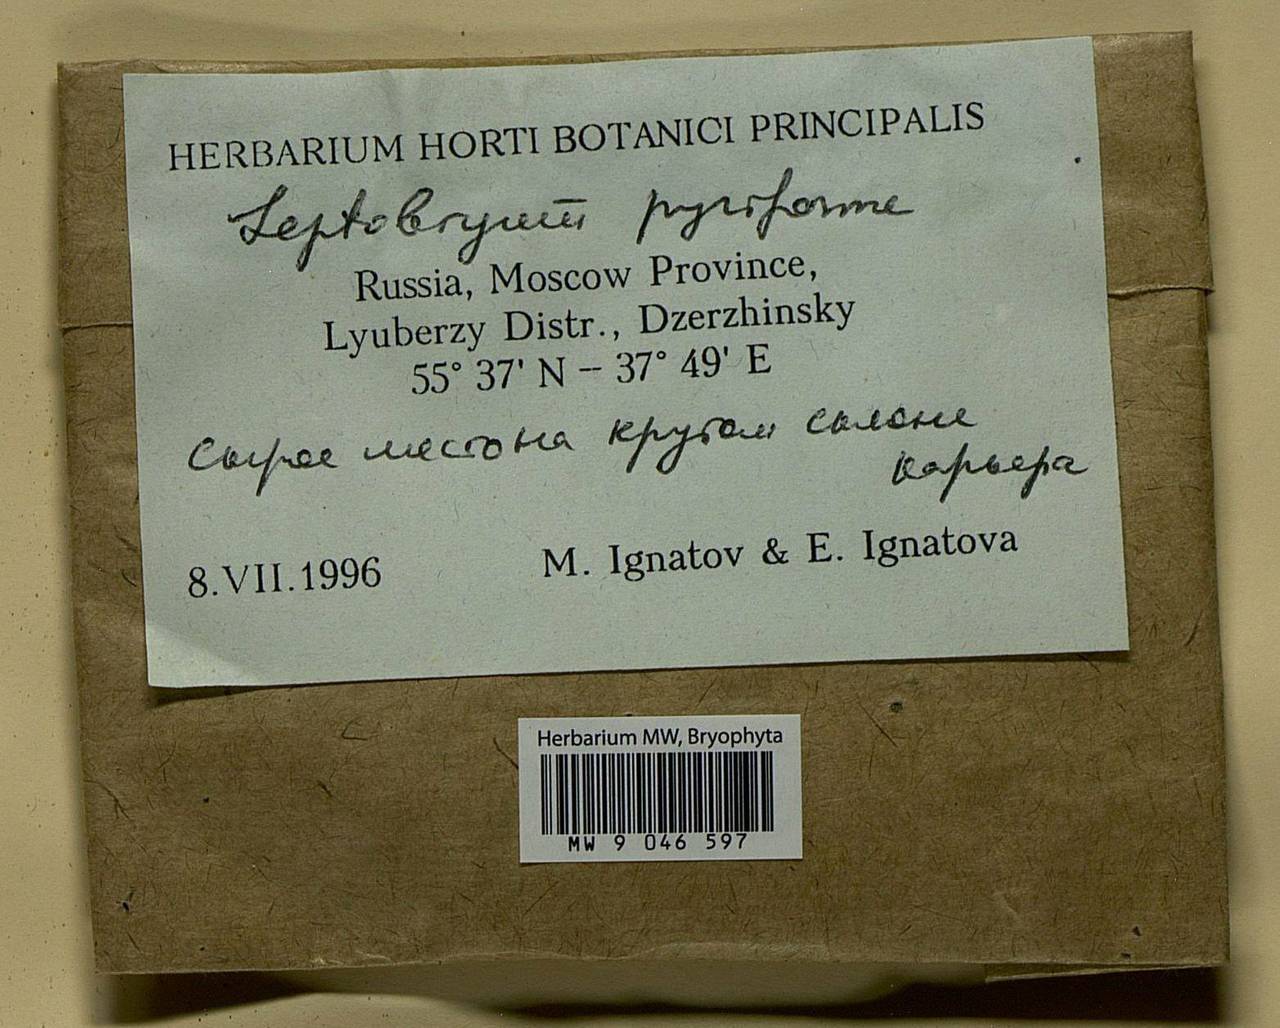 HERBARIUM HORTI BOTANICI PRINCIPALIS
Leptobryum pyriforme
Russia, Moscow Province,
Lyuberzy Distr., Dzerzhinsky
55° 37' N – 37° 49' E
Сырое место на крутом склоне
карьера
8.VII.1996 M. Ignatov & E. Ignatova
Herbarium MW, Bryophyta
MW 9 046 597